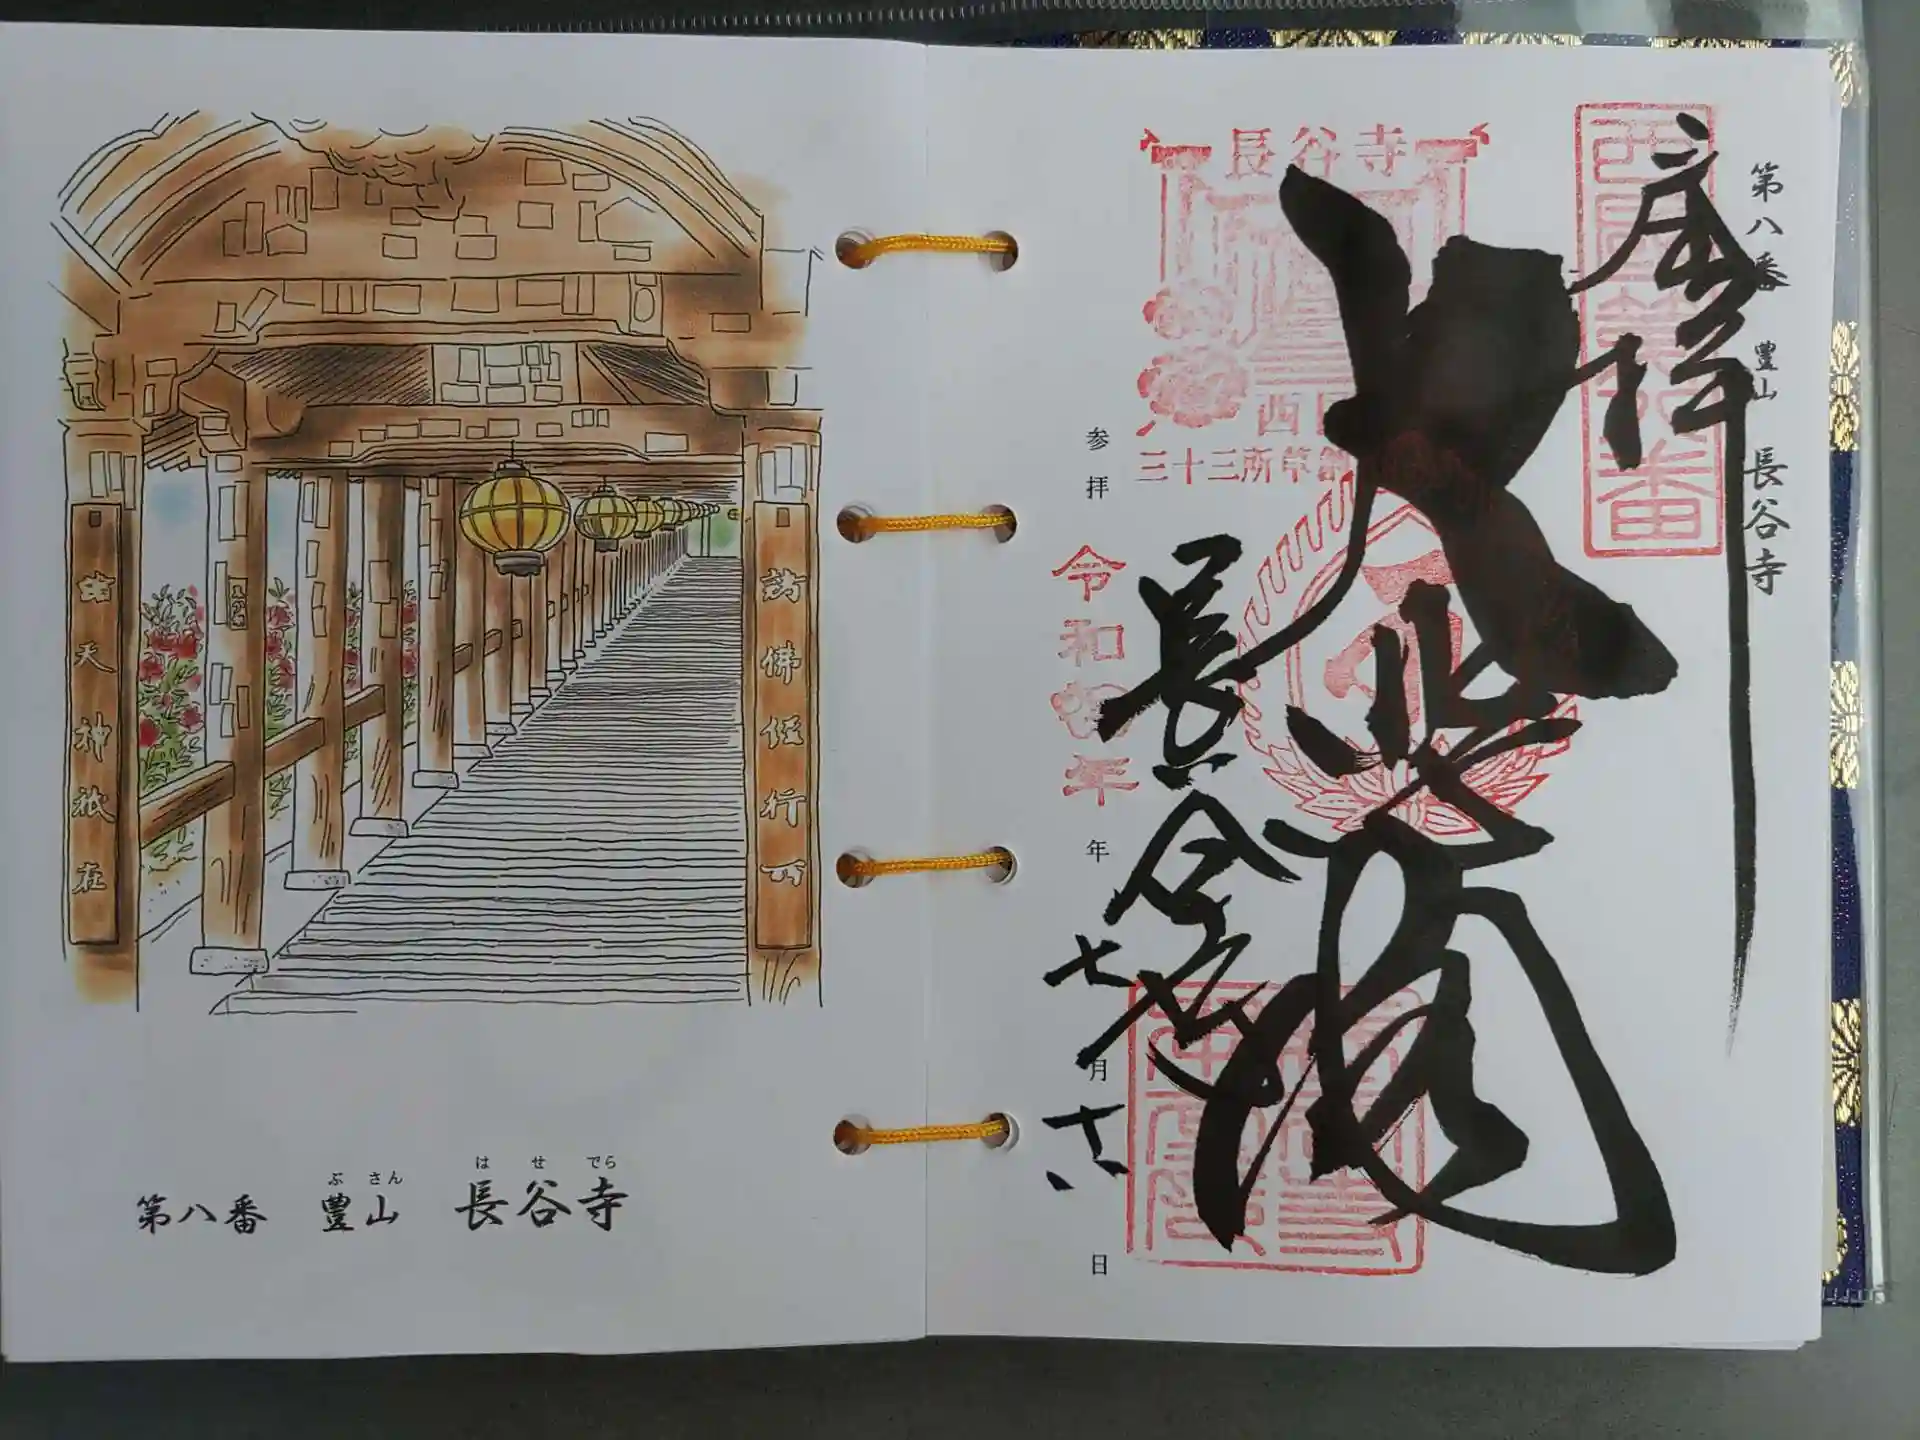 第八番 豊山 長谷寺
西国第八番
奉拝
大悲閣
長谷寺
長谷寺
西国
三十三所草創
令和
年
参拝 年 七月 日
諸佛経行所
諸天神祇在
ぶさん はせでら
第八番 豊山 長谷寺